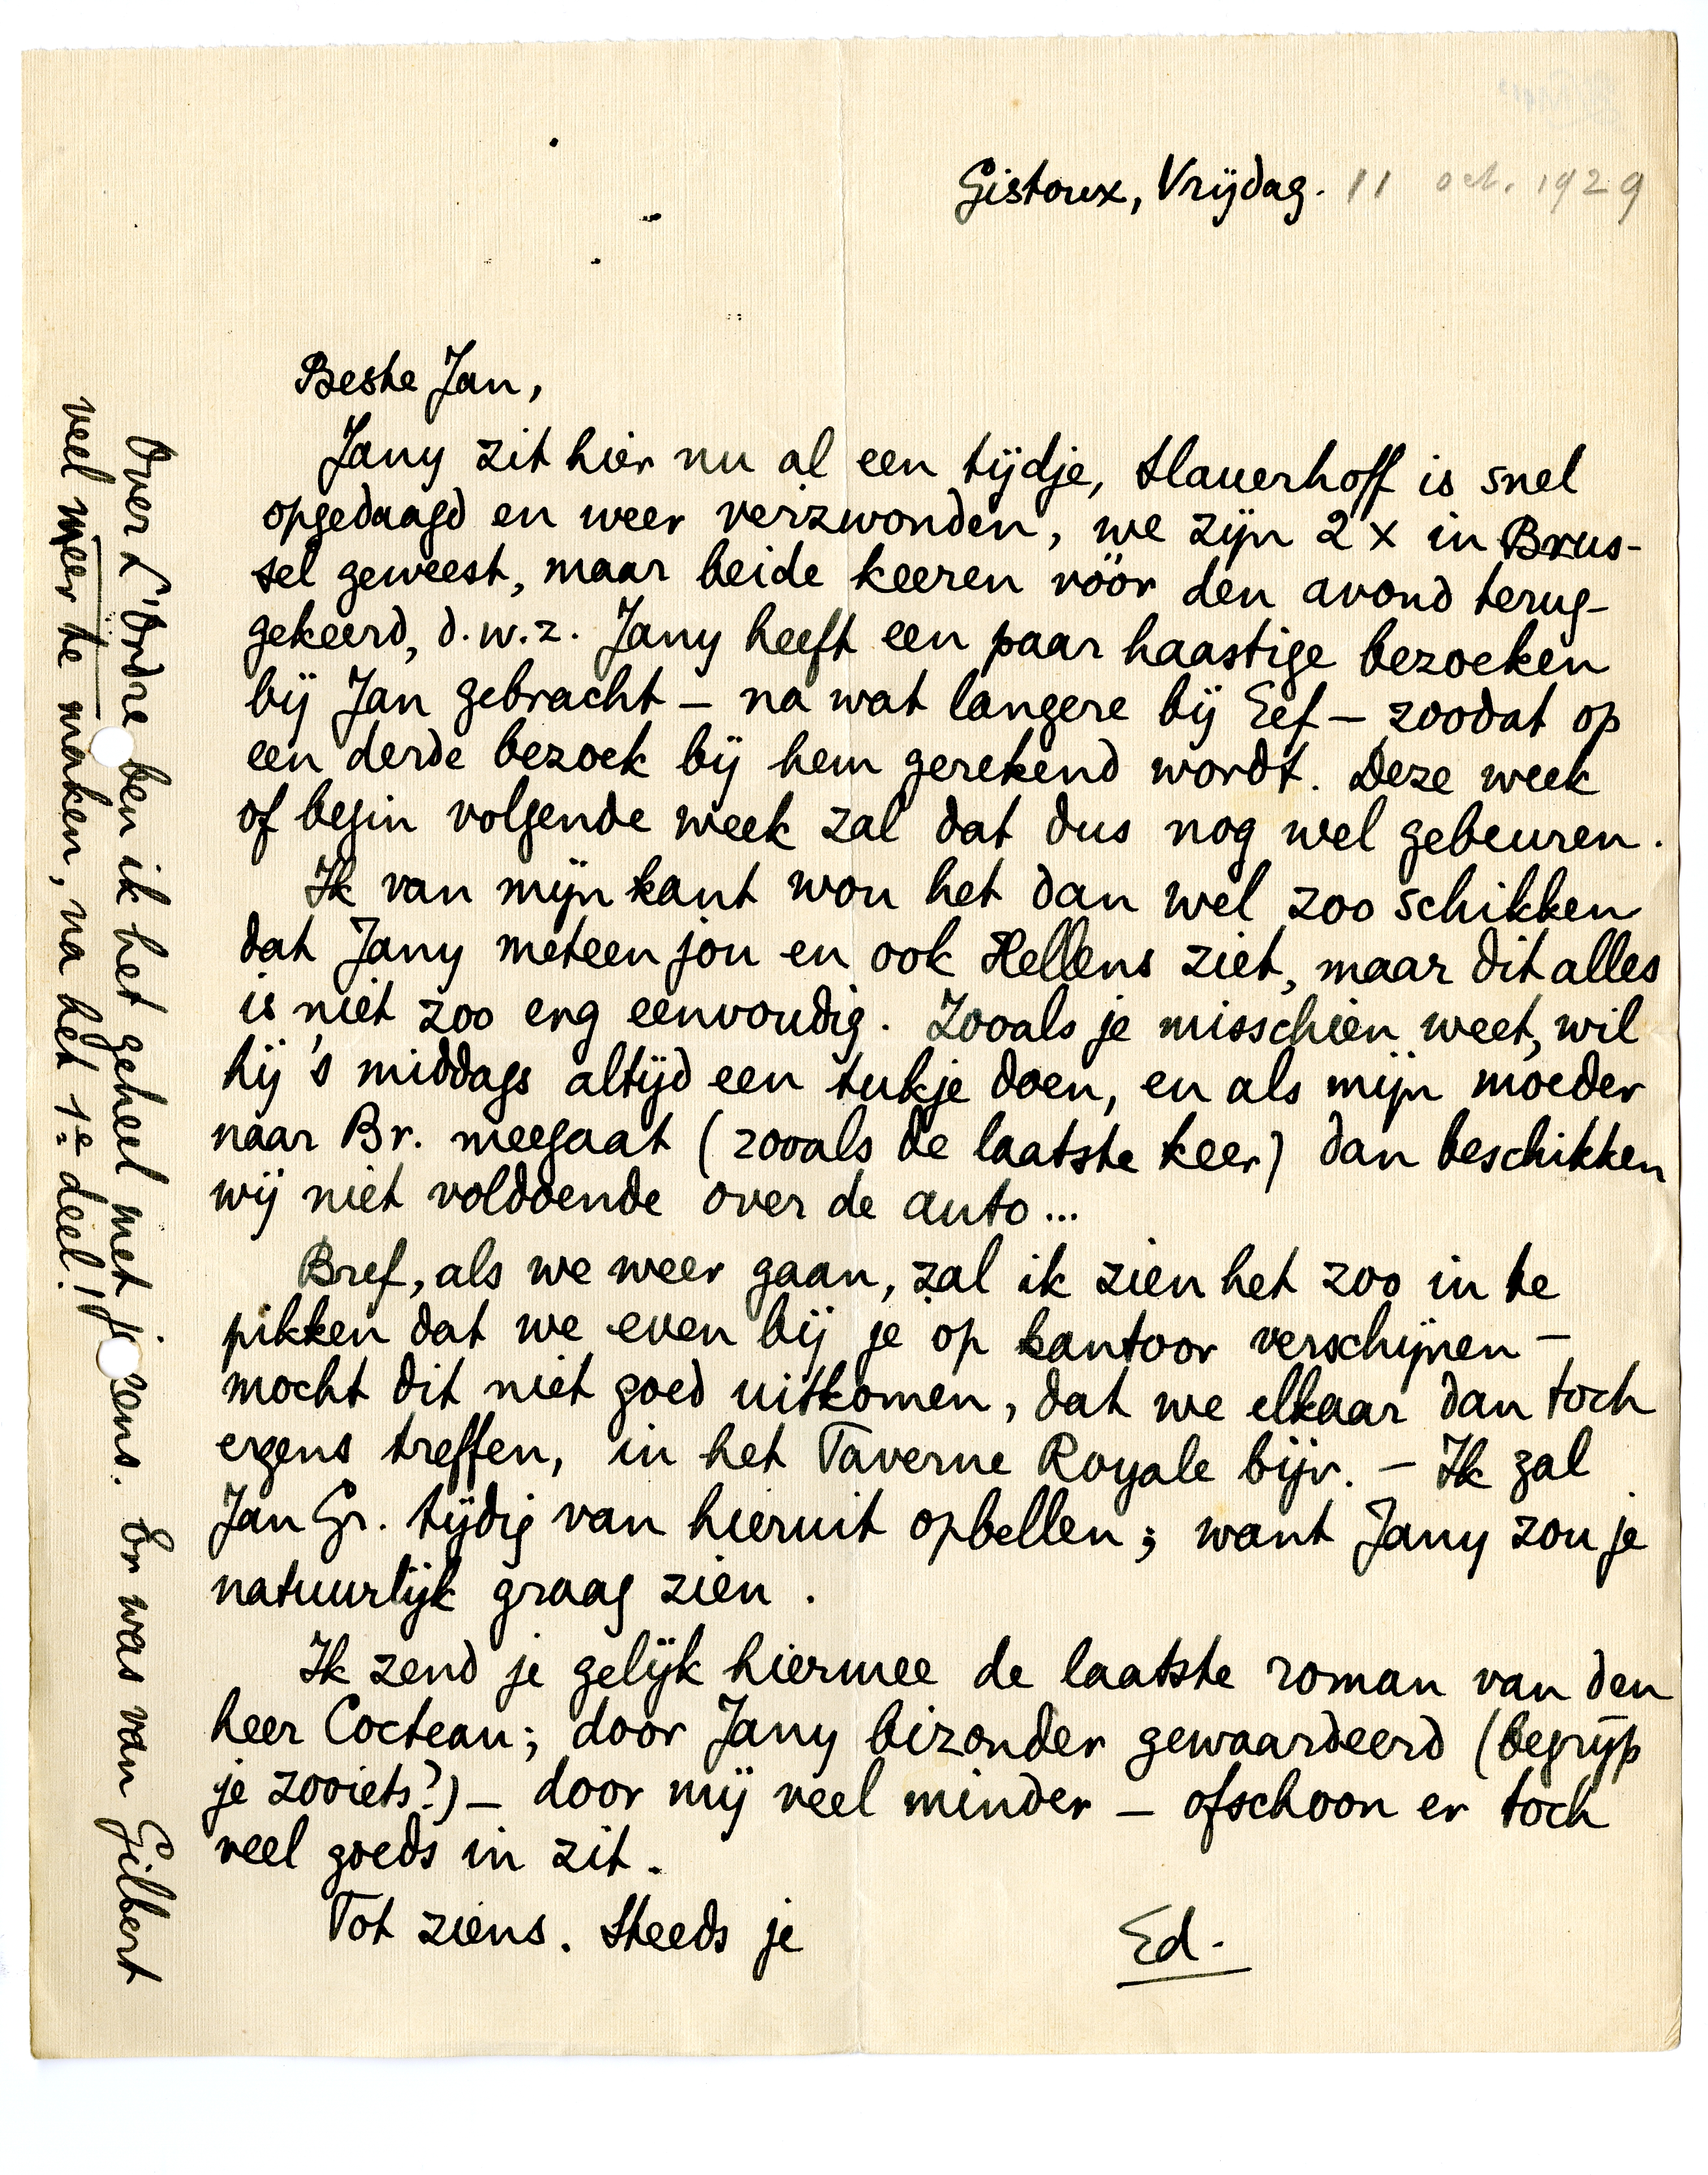 Gistoux, Vrijdag. 11 oct. 1929
Beste Jan,
Jany zit hier nu al een tijdje, Slauerhoff is snel
opgedaagd en weer verzwonden, we zijn 2 x in Brus-
sel geweest, maar beide keeren vóór den avond terug-
gekeerd, d.w.z. Jany heeft een paar haastige bezoeken
bij Jan gebracht – na wat langere bij Eef – zoodat op
een derde bezoek bij hem gerekend wordt. Deze week
of begin volgende week zal dat dus nog wel gebeuren.
Ik van mijn kant wou het dan wel zoo schikken
dat Jany meteen jou en ook Hellens ziet, maar dit alles
is niet zoo erg eenvoudig. Zooals je misschien weet, wil
hij 's middags altijd een tukje doen, en als mijn moeder
naar Br. meegaat (zooals de laatste keer) dan beschikken
wij niet voldoende over de auto...
Bref, als we weer gaan, zal ik zien het zoo in te
pikken dat we even bij je op kantoor verschijnen –
mocht dit niet goed uitkomen, dat we elkaar dan toch
ergens treffen, in het Taverne Royale bijv. – Ik zal
Jan Gr. tijdig van hieruit opbellen; want Jany zou je
natuurlijk graag zien.
Ik zend je gelijk hiermee de laatste roman van den
heer Cocteau; door Jany bizonder gewaardeerd (begrijp
je zooiets?) – door mij veel minder – ofschoon er toch
veel goeds in zit.
Tot ziens. Steeds je
Ed.
Over L'Ordre ben ik het geheel met j eens. Er was van Gilbert
veel meer te maken, na het 1e deel!